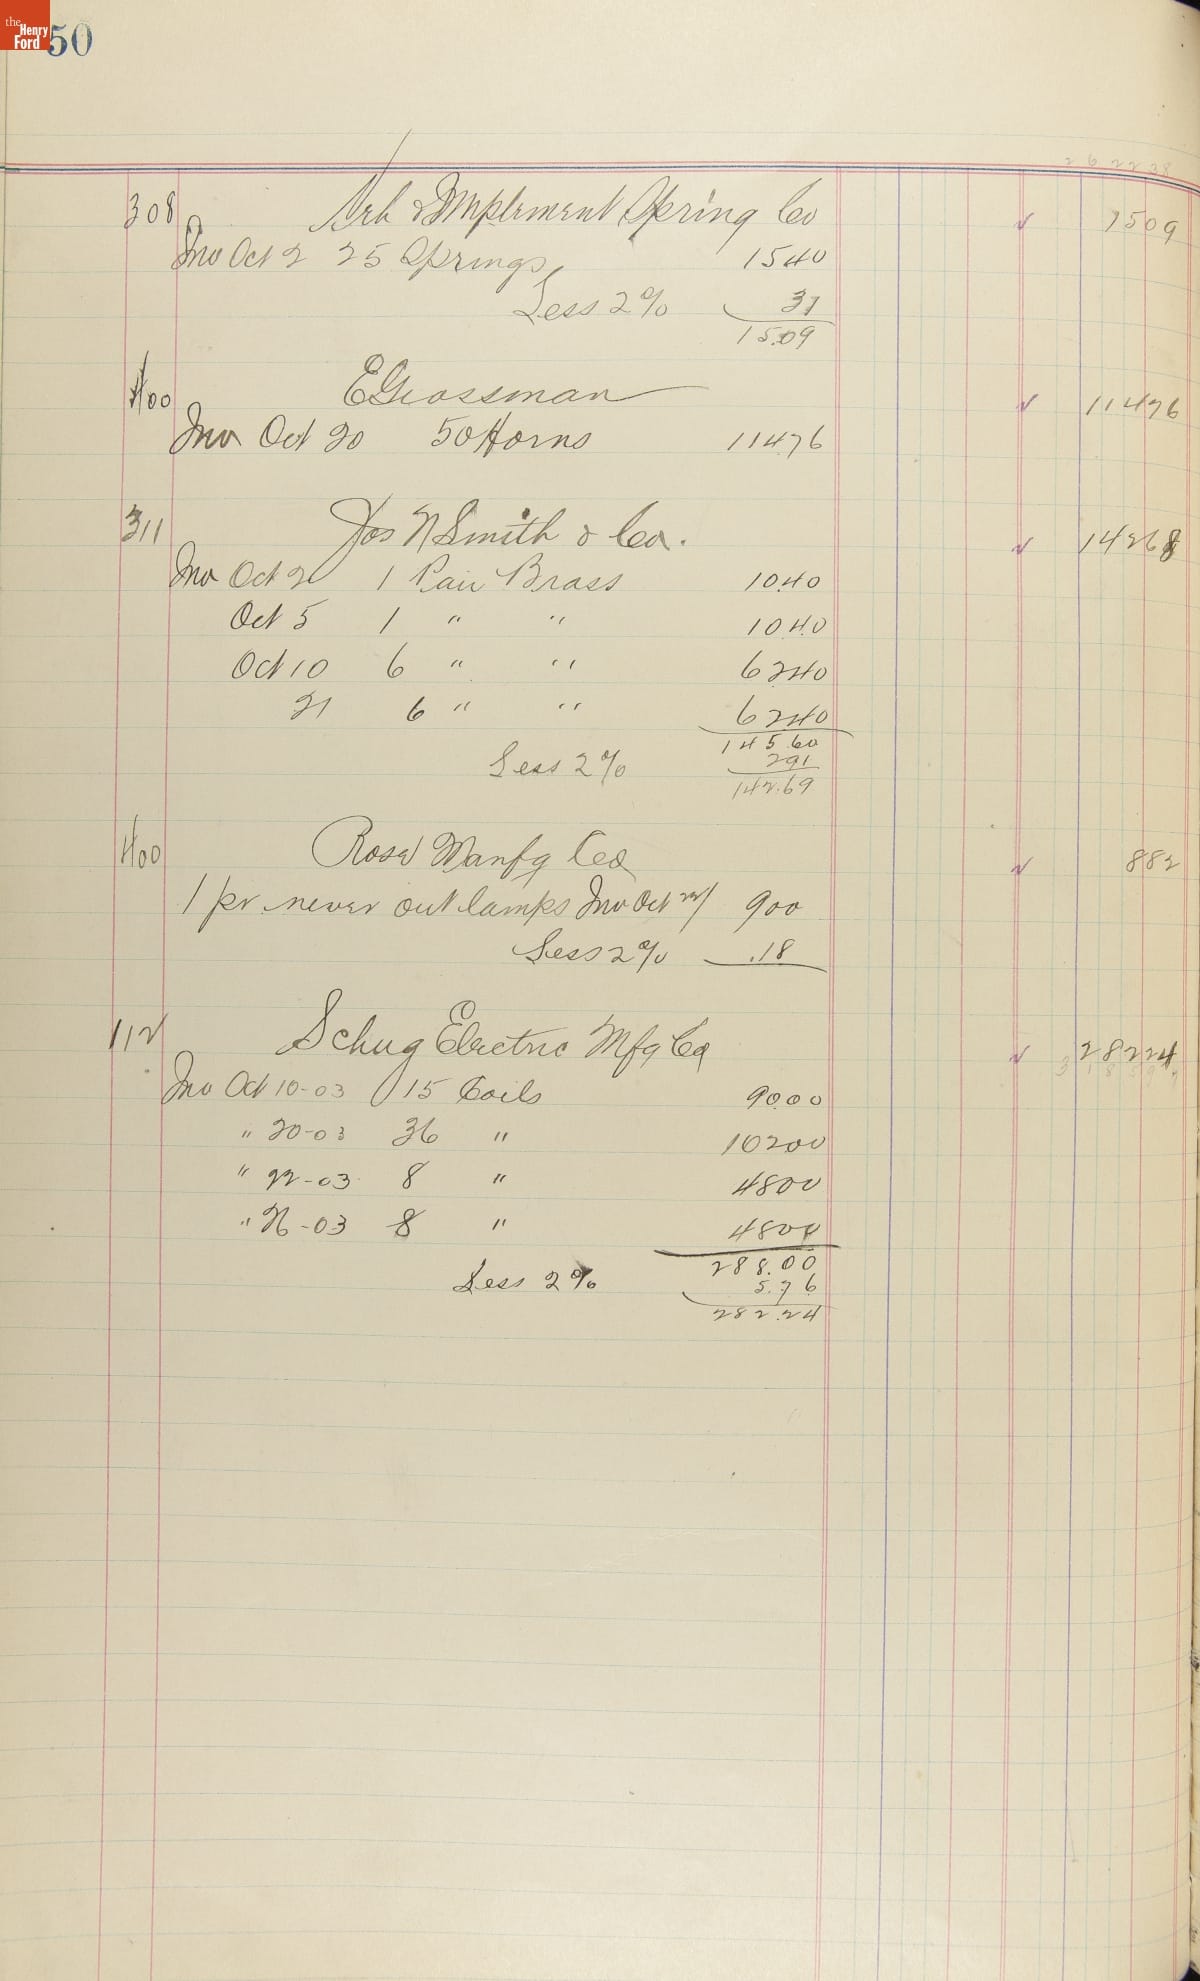 the Henry Ford
50
2 6 22 28
308 Veh & Implement Spring Co 1509
Inv Oct 2 25 Springs 1540
Less 2% 31
15.09
400 E Grossman 11476
Inv Oct 20 50 Horns 11476
311 Jos N Smith & Co. 14268
Inv Oct 2 1 Pair Brass 1040
Oct 5 1 " " 1040
Oct 10 6 " " 6240
21 6 " " 6240
145.60
Less 2% 291
142.69
400 Rose Manfg Co 882
1 pr never out lamps Inv Oct 900
Less 2% .18
112 Schug Electric Mfg Co 28224
Inv Oct 10-03 15 Coils 9000
" 20-03 36 " 10200
" 22-03 8 " 4800
" 26-03 8 " 4800
288.00
Less 2% 5.76
282.24